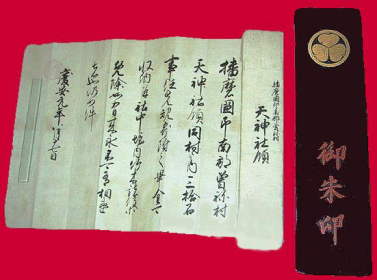 御朱印
播磨國印南郡曽祢村
天神社領
播磨國印南郡曽祢村
天神社領同村内三拾石
事任先規寄附之畢全可
収納并社中境内竹木諸役等
免除如有来永不可有相違
者也仍如件
慶安元年